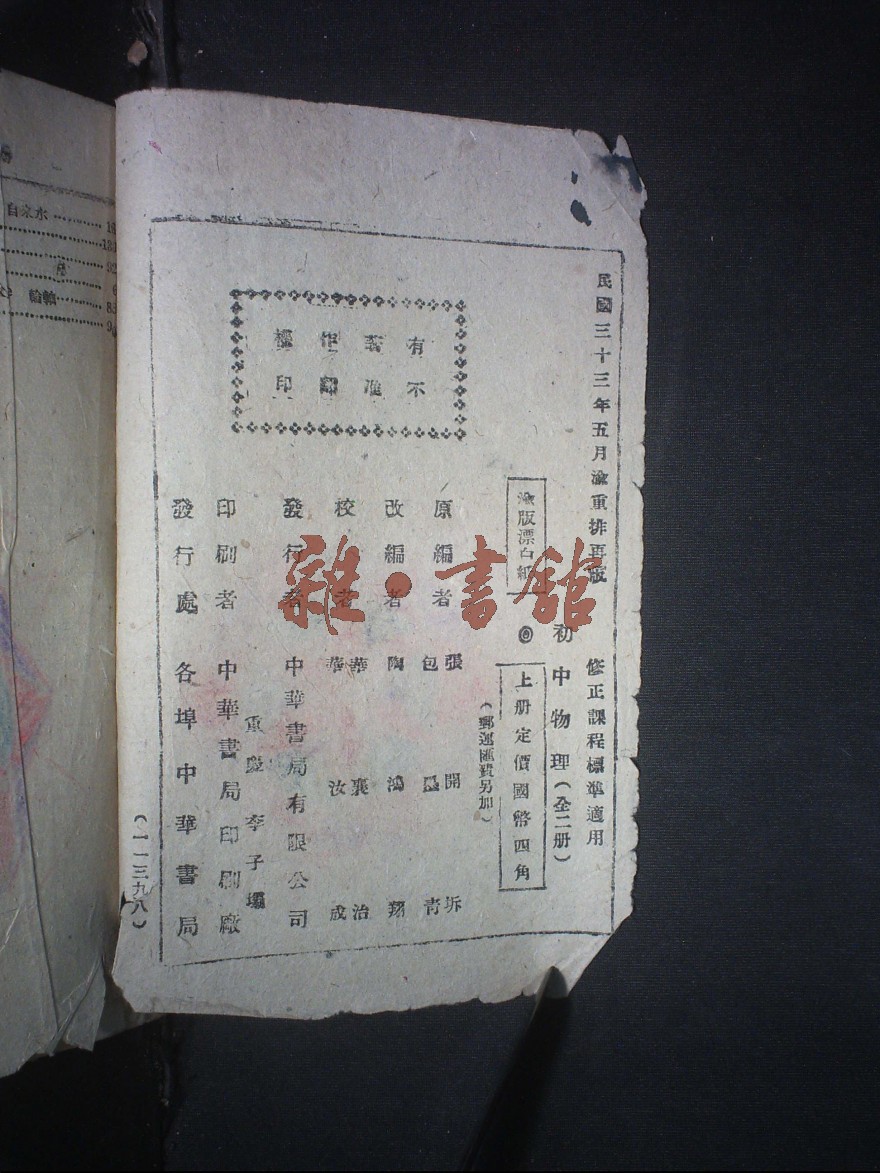 民國三十三年五月渝重排再版
修正課程標準適用
初中物理(全二册)
渝版漂白紙
◎
上册定價國幣四角
(郵運匯費另加)
原編者 張開圻
包墨青
改編者 陶鴻翔
校者 華襄治
華汝成
發行者 中華書局有限公司
重慶李子壩
印刷者 中華書局印刷廠
發行處 各埠中華書局
(一一三九八)
有不
著准
作翻
權印
雜·書館
自來水
輪軸